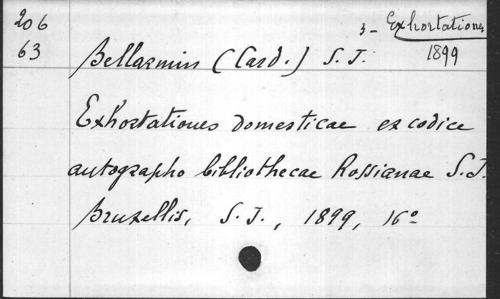 206
63
3- Exhortationes
1899
Bellarmin (Card.) S. J.
Exhortationes domesticae ex codice
autographo bibliothecae Rossianae S. J.
Bruxellis, S. J., 1899, 16°